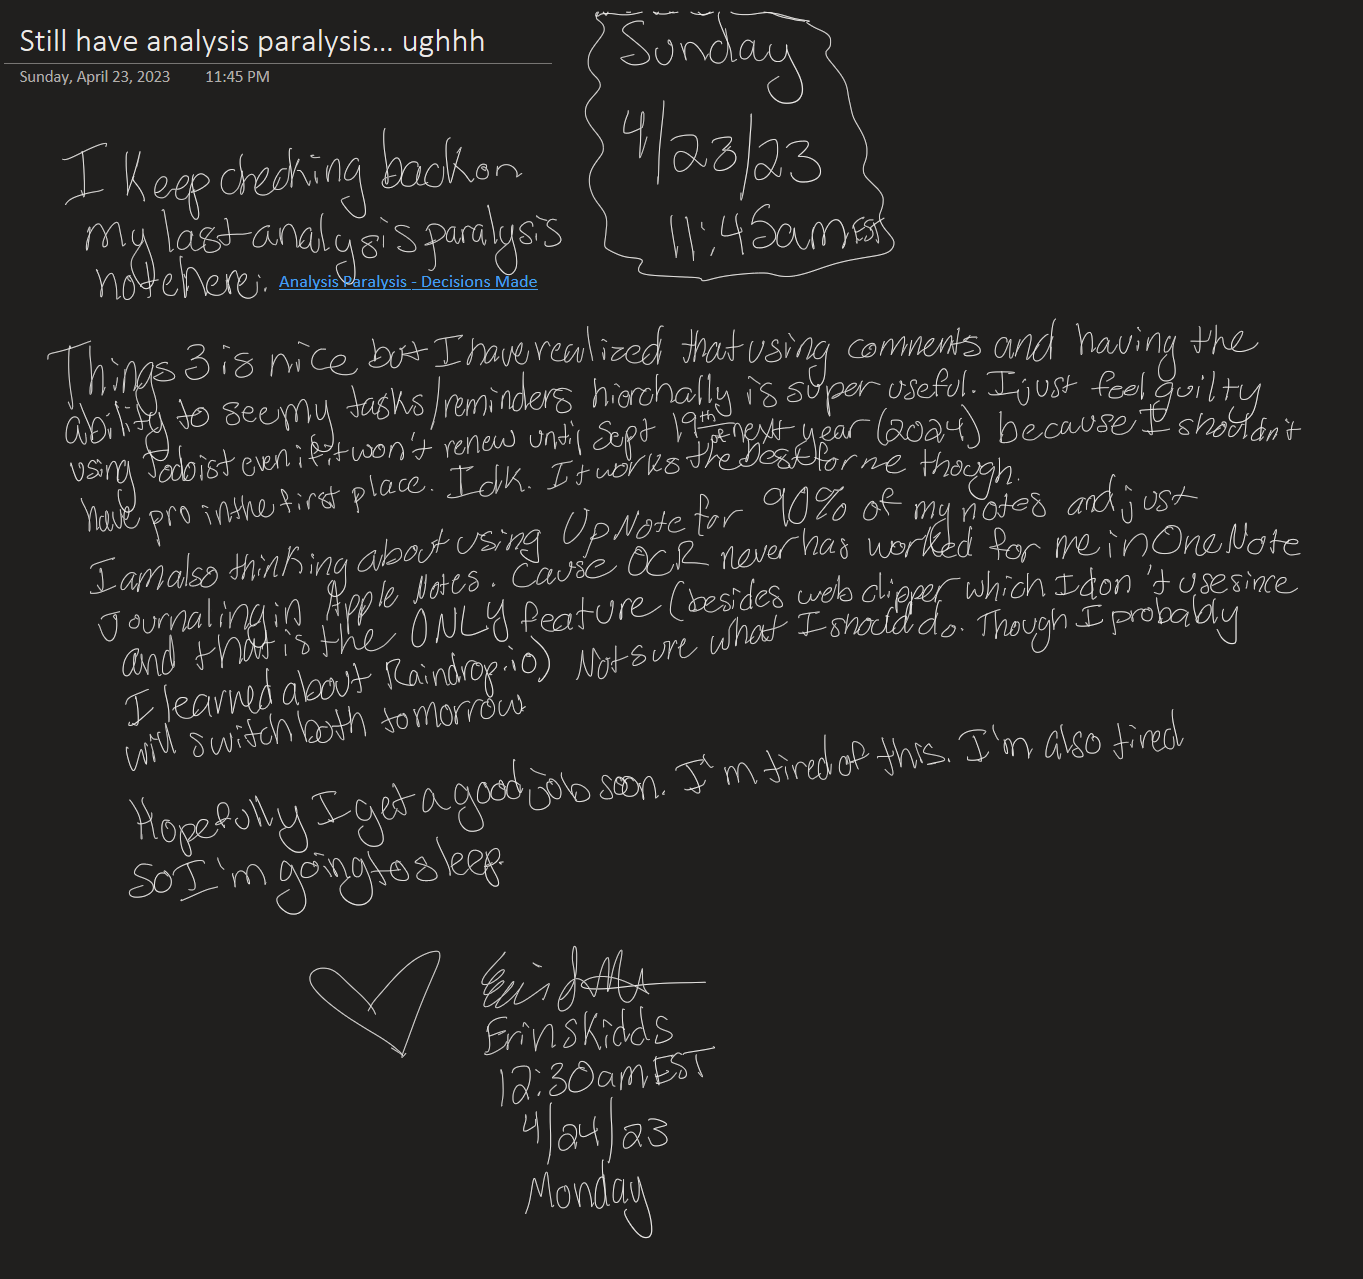 Still have analysis paralysis... ughhh
Sunday, April 23, 2023 11:45 PM
Sunday
4/23/23
11:45am EST
I keep checking back on
my last analysis paralysis
note here:
Analysis Paralysis - Decisions Made
Things 3 is nice but I have realized that using comments and having the
ability to see my tasks/reminders hiorchally is super useful. I just feel guilty
using Todoist even if it won't renew until Sept 19th of next year (2024) because I shouldn't
have pro in the first place. Idk. It works the best for me though.
I am also thinking about using UpNote for 90% of my notes and just
Journaling in Apple Notes. Cause OCR never has worked for me in OneNote
and that is the ONLY feature (besides web clipper which I don't use since
I learned about Raindrop.io) Not sure what I should do. Though I probably
will switch both tomorrow
Hopefully I get a good job soon. I'm tired of this. I'm also tired
So I'm going to sleep.
Erin Skidds
12:30am EST
4/24/23
Monday